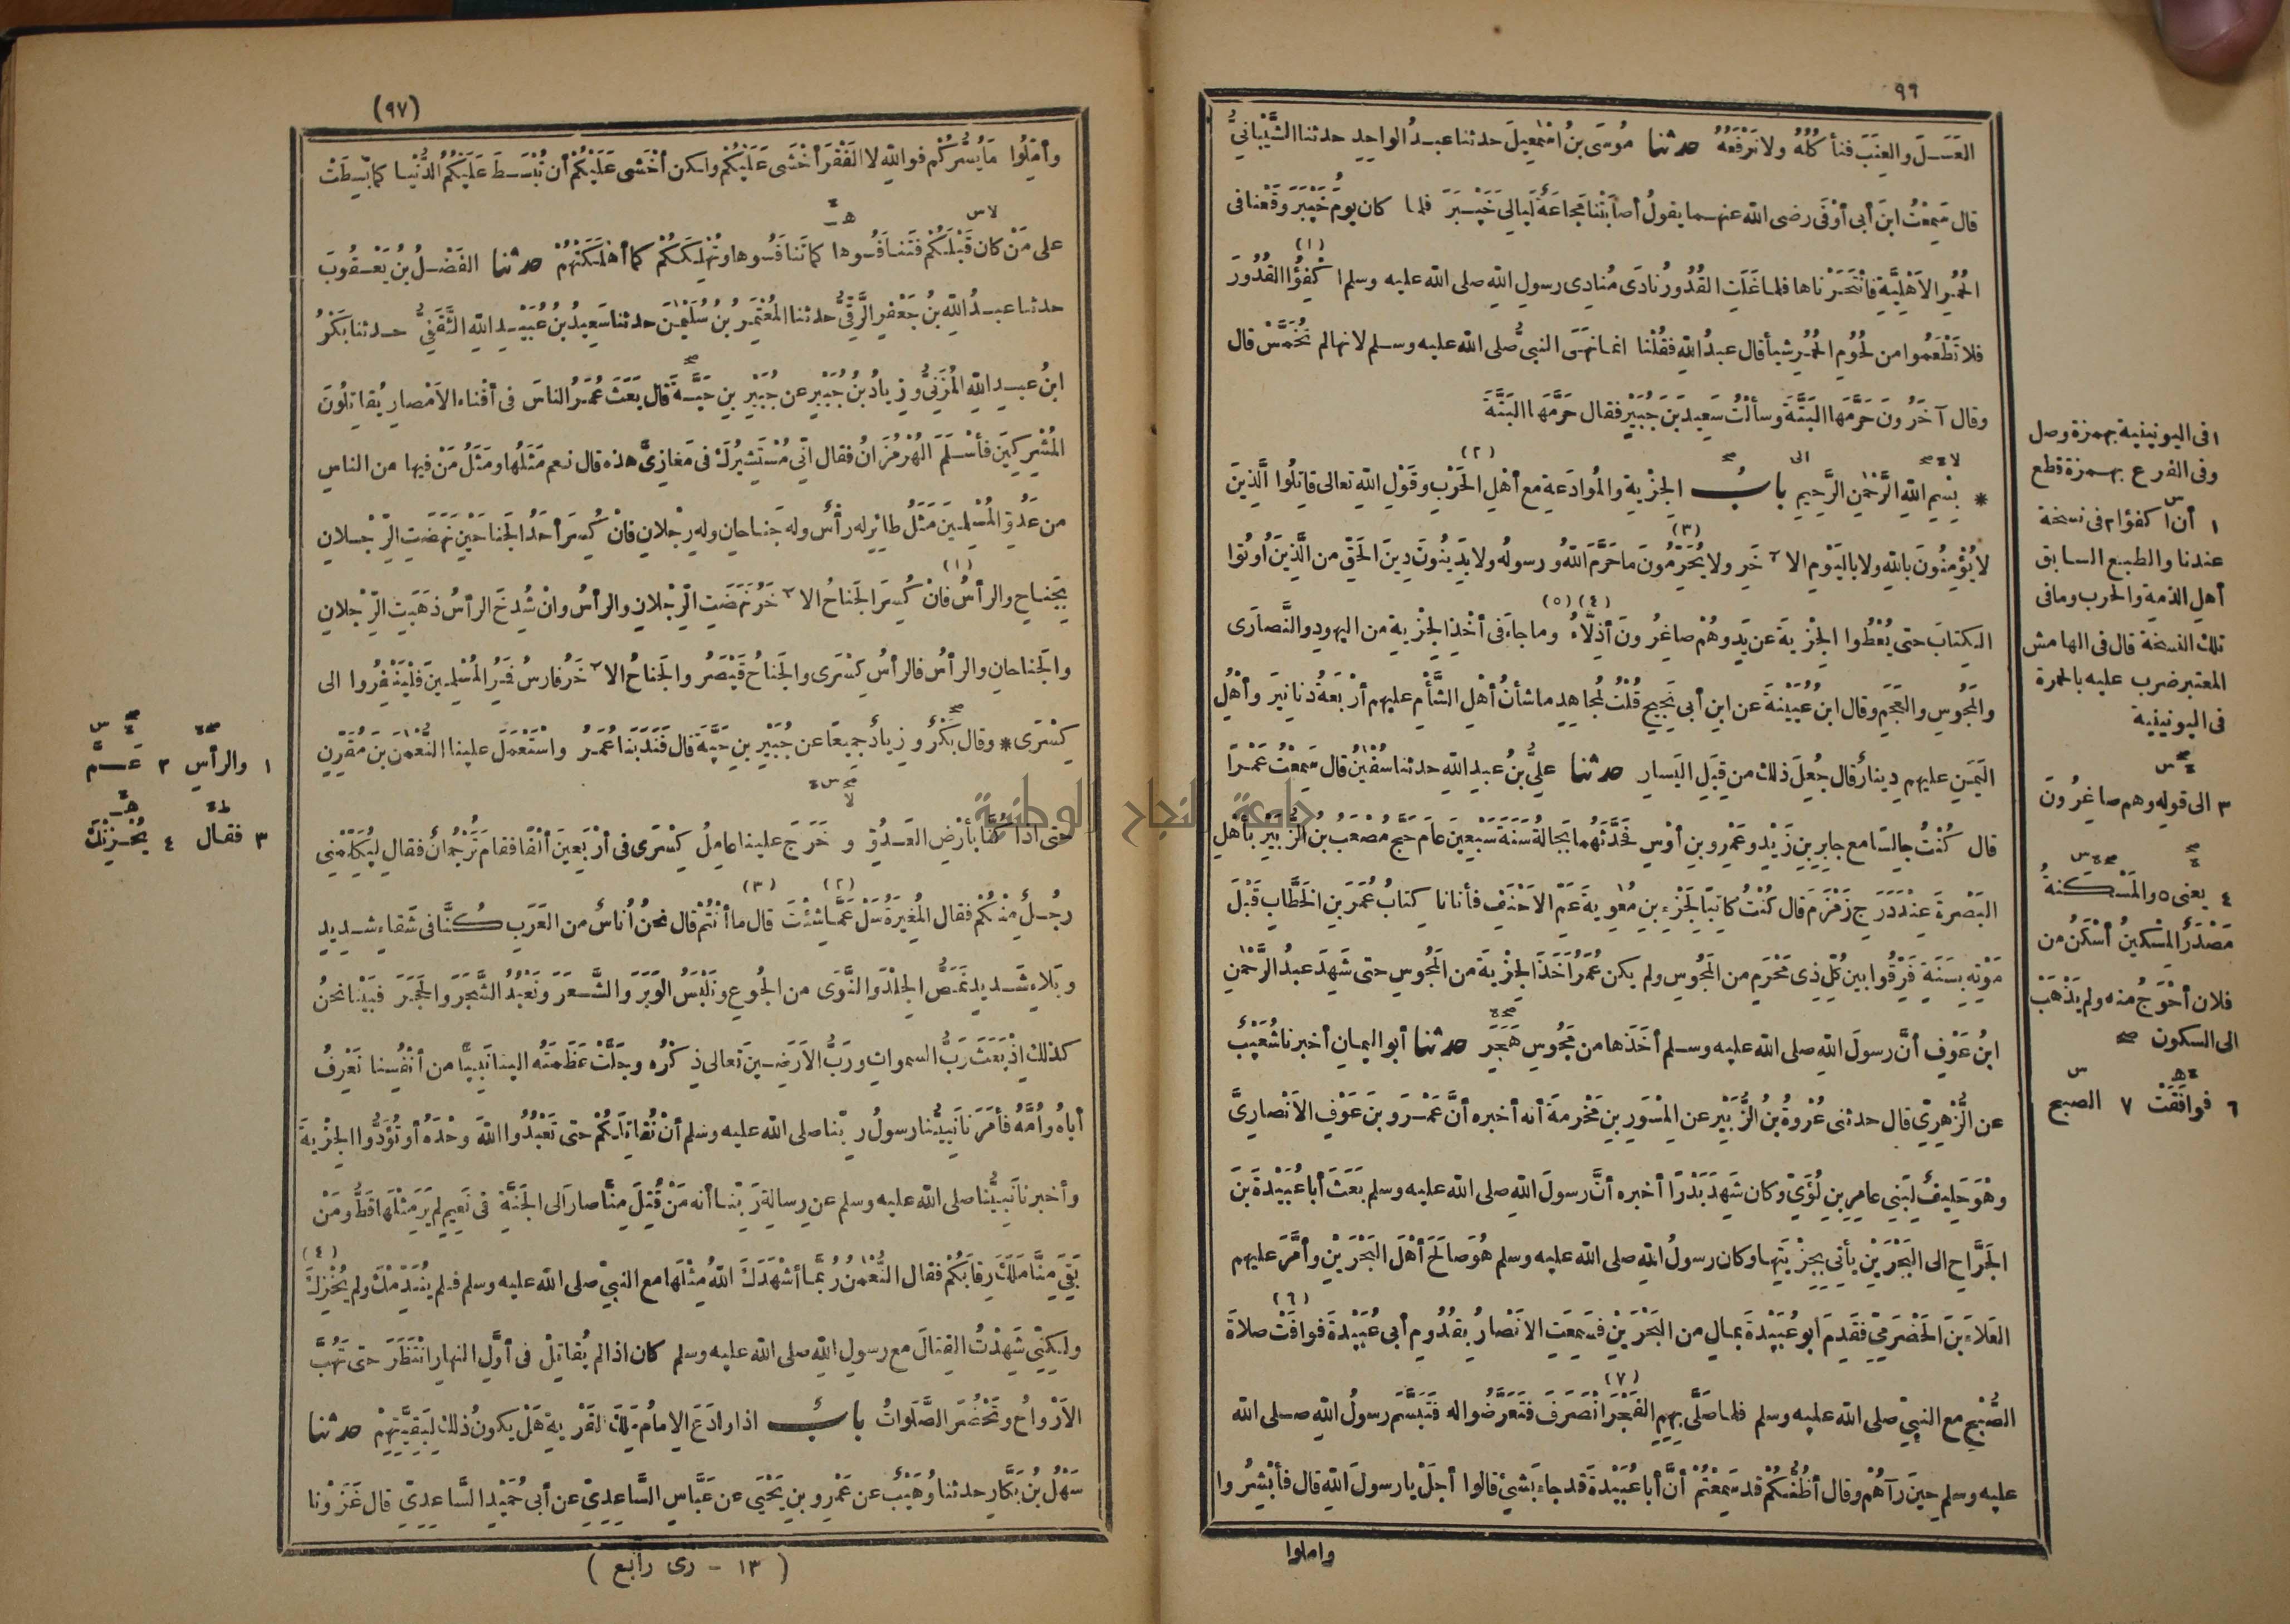 ٩٦
العَسَلَ والعِنَبَ فنأكُلُهُ ولا نَرْفَعُهُ حدثنا مُوسَى بنُ اسْمٰعِيلَ حدثنا عبدُ الواحِدِ حدثنا الشَّيْبانِيُّ
قال سَمِعْتُ ابنَ أبى أوْفَى رضى الله عنهما يقولُ أصابَتْنا مَجاعَةٌ لَيالِىَ خَيْبَرَ فلما كان يومُ خَيْبَرَ وقَعْنا فى
الحُمُرِ الاَهْلِيَّةِ فانْتَحَرْناها فلما غَلَتِ القُدُورُ نادَى مُنادِى رسولِ اللهِ صلى الله عليه وسلم (١) اكْفِؤُا القُدُورَ
فلا تَطْعَمُوا من لُحُومِ الحُمُرِ شيأ قال عبدُ اللهِ فقُلْنا انما نَهَى النبىُّ صلى الله عليه وسلم لانها لم تُخَمَّسْ قال
وقال آخَرُونَ حَرَّمَها البَتَّةَ وسألْتُ سَعِيدَ بنَ جُبَيْرٍ فقال حَرَّمَها البَتَّةَ
* بِسْمِ اللهِ الرَّحْمٰنِ الرَّحِيمِ بابُ الجِزْيةِ والمُوادَعةِ مع أهْلِ (٢) الحَرْبِ وقَوْلِ اللهِ تعالى قاتِلُوا الَّذِينَ
لا يُؤْمِنُونَ باللهِ ولا باليَوْمِ الآخَرِ ولا يُحَرِّمُونَ (٣) ما حَرَّمَ اللهُ ورسولُه ولا يَدِينُونَ دِينَ الحَقِّ من الَّذِينَ أُوتُوا
الكِتابَ حتى يُعْطُوا الجِزْيةَ عن يَدٍ وهُمْ صاغِرُونَ (٤) أذِلّاءُ (٥) وما جاءَ فى أخْذِ الجِزْيةِ من اليهودِ والنَّصارَى
والمَجُوسِ والعَجَمِ وقال ابنُ عُيَيْنةَ عن ابنِ أبى نَجِيحٍ قُلْتُ لمُجاهِدٍ ما شأنُ أهْلِ الشَّأْمِ عليهم أرْبَعةُ دَنانِيرَ وأهْلُ
اليَمَنِ عليهم دِينارٌ قال جُعِلَ ذلك من قِبَلِ اليَسارِ حدثنا علىُّ بنُ عبدِ اللهِ حدثنا سُفْيٰنُ قال سَمِعْتُ عَمْرًا
قال كُنْتُ جالِسًا مع جابِرِ بنِ زَيْدٍ وعَمْرِو بنِ أوْسٍ فَحَدَّثَهُما بَجالةُ سَنَةَ سَبْعِينَ عامَ حَجَّ مُصْعَبُ بنُ الزُّبَيْرِ بأهْلِ
البَصْرةِ عِنْدَ دَرَجِ زَمْزَمَ قال كُنْتُ كاتِبًا لجَزْءِ بنِ مُعٰوِيةَ عَمِّ الاَحْنَفِ فأتانا كِتابُ عُمَرَ بنِ الخَطَّابِ قَبْلَ
مَوْتِهِ بِسَنَةٍ فَرِّقُوا بين كُلِّ ذِى مَحْرَمٍ من المَجُوسِ ولم يكن عُمَرُ أخَذَ الجِزْيةَ من المَجُوسِ حتى شَهِدَ عبدُ الرَّحْمٰنِ
ابنُ عَوْفٍ أنَّ رسولَ اللهِ صلى الله عليه وسلم أخَذَها من مَجُوسِ هَجَرَ حدثنا أبو اليمان أخبرنا شُعَيْبٌ
عن الزُّهْرِىِّ قال حدثنى عُرْوةُ بنُ الزُّبَيْرِ عن المِسْوَرِ بنِ مَخْرمةَ أنه أخبره أنَّ عَمْرَو بنَ عَوْفٍ الاَنْصارِىَّ
وهْوَ حَلِيفٌ لِبَنِى عامِرِ بنِ لُؤَىٍّ وكان شَهِدَ بَدْرًا أخبره أنَّ رسولَ اللهِ صلى الله عليه وسلم بَعَثَ أباعُبَيْدةَ بنَ
الجَرَّاحِ الى البَحْرَيْنِ يأتِى بِجِزْيَتِها وكان رسولُ اللهِ صلى الله عليه وسلم هُوَ صالَحَ أهْلَ البَحْرَيْنِ وأمَّرَ عليهم
العَلاءَ بنَ الحَضْرَمِىِّ فقَدِمَ أبو عُبَيْدةَ بمالٍ من البَحْرَيْنِ فسَمِعَتِ الانْصارُ بقُدُومِ أبى عُبَيْدةَ فوافَتْ (٦) صلاةَ
الصُّبْحِ مع النبىِّ صلى الله عليه وسلم فلما صَلَّى بِهِمِ الفَجْرَ (٧) انْصَرَفَ فتَعَرَّضُوا له فتَبَسَّمَ رسولُ اللهِ صلى الله
عليه وسلم حِينَ رَآهُمْ وقال أظُنُّكُمْ قد سَمِعْتُمْ أنَّ أباعُبَيْدةَ قد جاءَ بشَىْءٍ قالوا أجَلْ يارسولَ اللهِ قال فأبْشِرُوا
واملوا
١ فى اليونينية بهمزة وصل
وفى الفرع بهمزة قطع
١ أن اكفؤا م فى نسخة
عندنا والطبع السابق
أهلِ الذمة والحرب وما فى
تلك النسخة قال فى الهامش
المعتبر ضرب عليه بالحمرة
فى اليونينية
٣ الى قوله وهم صاغِرُونَ
٤ يعنى ٥ والمَسْكَنةُ
مَصْدَرُ المسْكِينُ أسْكَنُ من
فلان أحْوَجُ منه ولم يَذْهَبْ
الى السكون
٦ فوافَقَتْ ٧ الصبح
(٩٧)
وأمِّلُوا مايَسُرُّكُم فواللهِ لا الفَقْرَ أخْشَى عَلَيْكُمْ ولكن أخْشَى عَلَيْكُمْ أن تُبْسَطَ عَلَيْكُمُ الدُّنْيا كما بُسِطَتْ
على مَنْ كان قَبْلَكُمْ فتَنافَسُوها كما تَنافَسُوها وتُهْلِكَكُمْ كما أهْلَكَتْهُمْ حدثنا الفَضْلُ بنُ يَعْقُوبَ
حدثنا عبدُ اللهِ بنُ جَعْفَرٍ الرَّقِّىُّ حدثنا المُعْتَمِرُ بنُ سُلَيْمٰنَ حدثنا سَعِيدُ بنُ عُبَيْدِ اللهِ الثَّقَفِىُّ حدثنا بَكْرُ
ابنُ عبدِ اللهِ المُزَنِىُّ وزيادُ بنُ جُبَيْرٍ عن جُبَيْرِ بنِ حَيَّةَ قال بَعَثَ عُمَرُ الناسَ فى أفْناءِ الاَمْصارِ يُقاتِلُونَ
المُشْرِكِينَ فأسْلَمَ الهُرْمُزَانُ فقال انِّى مُسْتَشِيرُكَ فى مَغازِىَّ هذه قال نعم مَثَلُها ومَثَلُ مَنْ فيها من الناسِ
من عَدُوِّ المُسْلِمِينَ مَثَلُ طائِرٍ له رأسٌ وله جَناحانِ وله رِجْلانِ فانْ كُسِرَ أحَدُ الجَناحَيْنِ نَهَضَتِ الرِّجْلانِ
بِجَناحٍ والرأسُ (١) فانْ كُسِرَ الجَناحُ الآخَرُ نَهَضَتِ الرِّجْلانِ والرأسُ وانْ شُدِخَ الرأسُ ذهَبَتِ الرِّجْلانِ
والجَناحانِ والرأسُ فالرأسُ كِسْرَى والجَناحُ قَيْصَرُ والجَناحُ الآخَرُ فارسُ فَمُرِ المُسْلِمِينَ فلْيَنْفِرُوا الى
كِسْرَى * وقال بَكْرٌ وزِيادٌ جميعًا عن جُبَيْرِ بنِ حَيَّةَ قال فَنَدَبَنا عُمَرُ واسْتَعْمَلَ علينا النُّعْمٰنَ بنَ مُقَرِّنٍ
حتى اذا كُنَّا بأرْضِ العَدُوِّ وخَرَجَ علينا عامِلُ كِسْرَى فى أرْبَعِينَ ألْفًا فقام تُرْجُمانٌ فقال لِيُكَلِّمْنِى
رجُلٌ مِنْكُمْ فقال المُغِيرةُ سَلْ عَمَّا (٢) شِئْتَ قال (٣) ما أنْتُمْ قال نحنُ أُناسٌ من العَرَبِ كُنَّا فى شَقاءٍ شديدٍ
وبَلاءٍ شَديدٍ نَمَصُّ الجِلْدَ والنَّوَى من الجُوعِ ونَلْبَسُ الوَبَرَ والشَّعَرَ ونَعْبُدُ الشَّجَرَ والحَجَرَ فبَيْنا نحنُ
كذلك اذْ بَعَثَ رَبُّ السموات ورَبُّ الاَرَضِينَ تعالى ذِكْرُه وجَلَّتْ عَظَمَتُه الينا نَبِيًّا من أنْفُسِنا نَعْرِفُ
أباهُ وأُمَّهُ فأمَرَنا نَبِيُّنا رسولُ رَبِّنا صلى الله عليه وسلم أنْ نُقاتِلَكُمْ حتى تَعْبُدُوا اللهَ وحْدَهُ أو تُؤَدُّوا الجِزْيةَ
وأخبرنا نَبِيُّنا صلى الله عليه وسلم عن رِسالةِ رَبِّنا أنه مَنْ قُتِلَ مِنَّا صارَ الى الجَنَّةِ فى نَعِيمٍ لم يَرَ مِثْلَها قَطُّ ومَنْ
بَقِىَ مِنَّا مَلَكَ رِقابَكُمْ فقال النُّعْمٰنُ رُبَّما أشْهَدَكَ اللهُ مِثْلَها مع النبىِّ صلى الله عليه وسلم فلم يُنَدِّمْكَ ولم يُخْزِكَ (٤)
ولكِنِّى شَهِدْتُ القِتالَ مع رسولِ اللهِ صلى الله عليه وسلم كان اذا لم يُقاتِلْ فى أوَّلِ النهارِ انْتَظَرَ حتى تَهُبَّ
الاَرْواحُ وتَحْضُرَ الصَّلَواتُ بابٌ اذا وادَعَ الاِمامُ مَلِكَ القَرْيةِ هَلْ يكونُ ذلك لِبَقِيَّتِهِمْ حدثنا
سَهْلُ بنُ بَكَّارٍ حدثنا وُهَيْبٌ عن عَمْرِو بنِ يَحْيَى عن عَبَّاسٍ السَّاعِدِىِّ عن أبى حُمَيْدٍ السَّاعِدِىِّ قال غَزَوْنا
(١٣ - رى رابع)
١ والرأسِ ٢ عَمَّ
٣ فقال ٤ يُحْزِنْكَ
جامعة النجاح الوطنية